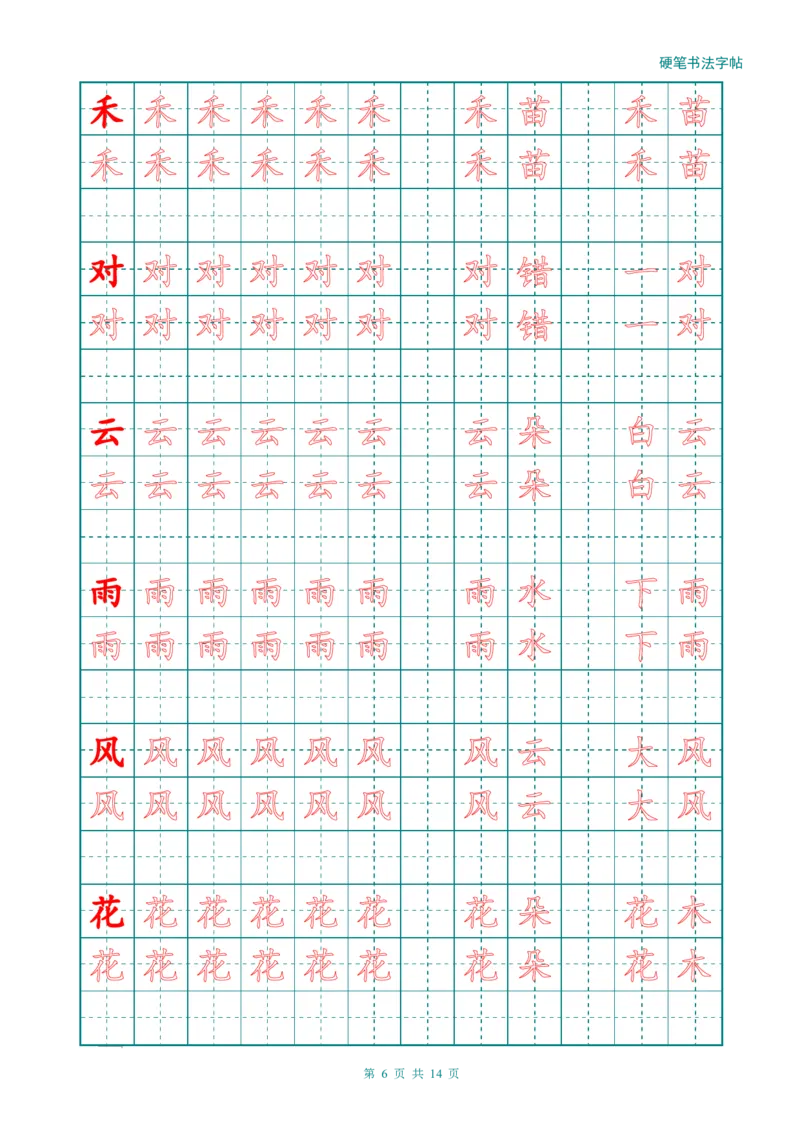 硬笔书法字帖
禾 禾 禾 禾 禾 禾 禾 苗 禾 苗
禾 禾 禾 禾 禾 禾 禾 苗 禾 苗
对 对 对 对 对 对 对 错 一 对
对 对 对 对 对 对 对 错 一 对
云 云 云 云 云 云 云 朵 白 云
云 云 云 云 云 云 云 朵 白 云
雨 雨 雨 雨 雨 雨 雨 水 下 雨
雨 雨 雨 雨 雨 雨 雨 水 下 雨
风 风 风 风 风 风 风 云 大 风
风 风 风 风 风 风 风 云 大 风
花 花 花 花 花 花 花 朵 花 木
花 花 花 花 花 花 花 朵 花 木
第 6 页 共 14 页